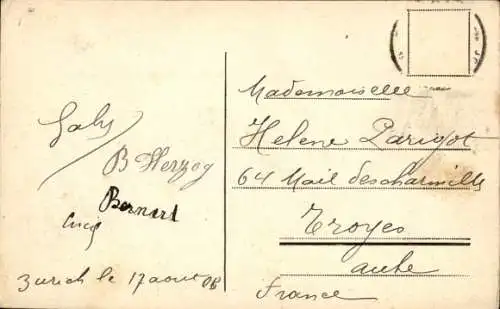 Gaby
B Herzog
Bernart
Zurich le 17 aout 08
Mademoiselle
Helene Parigot
64 Mail des charmilles
Troyes
aube
France